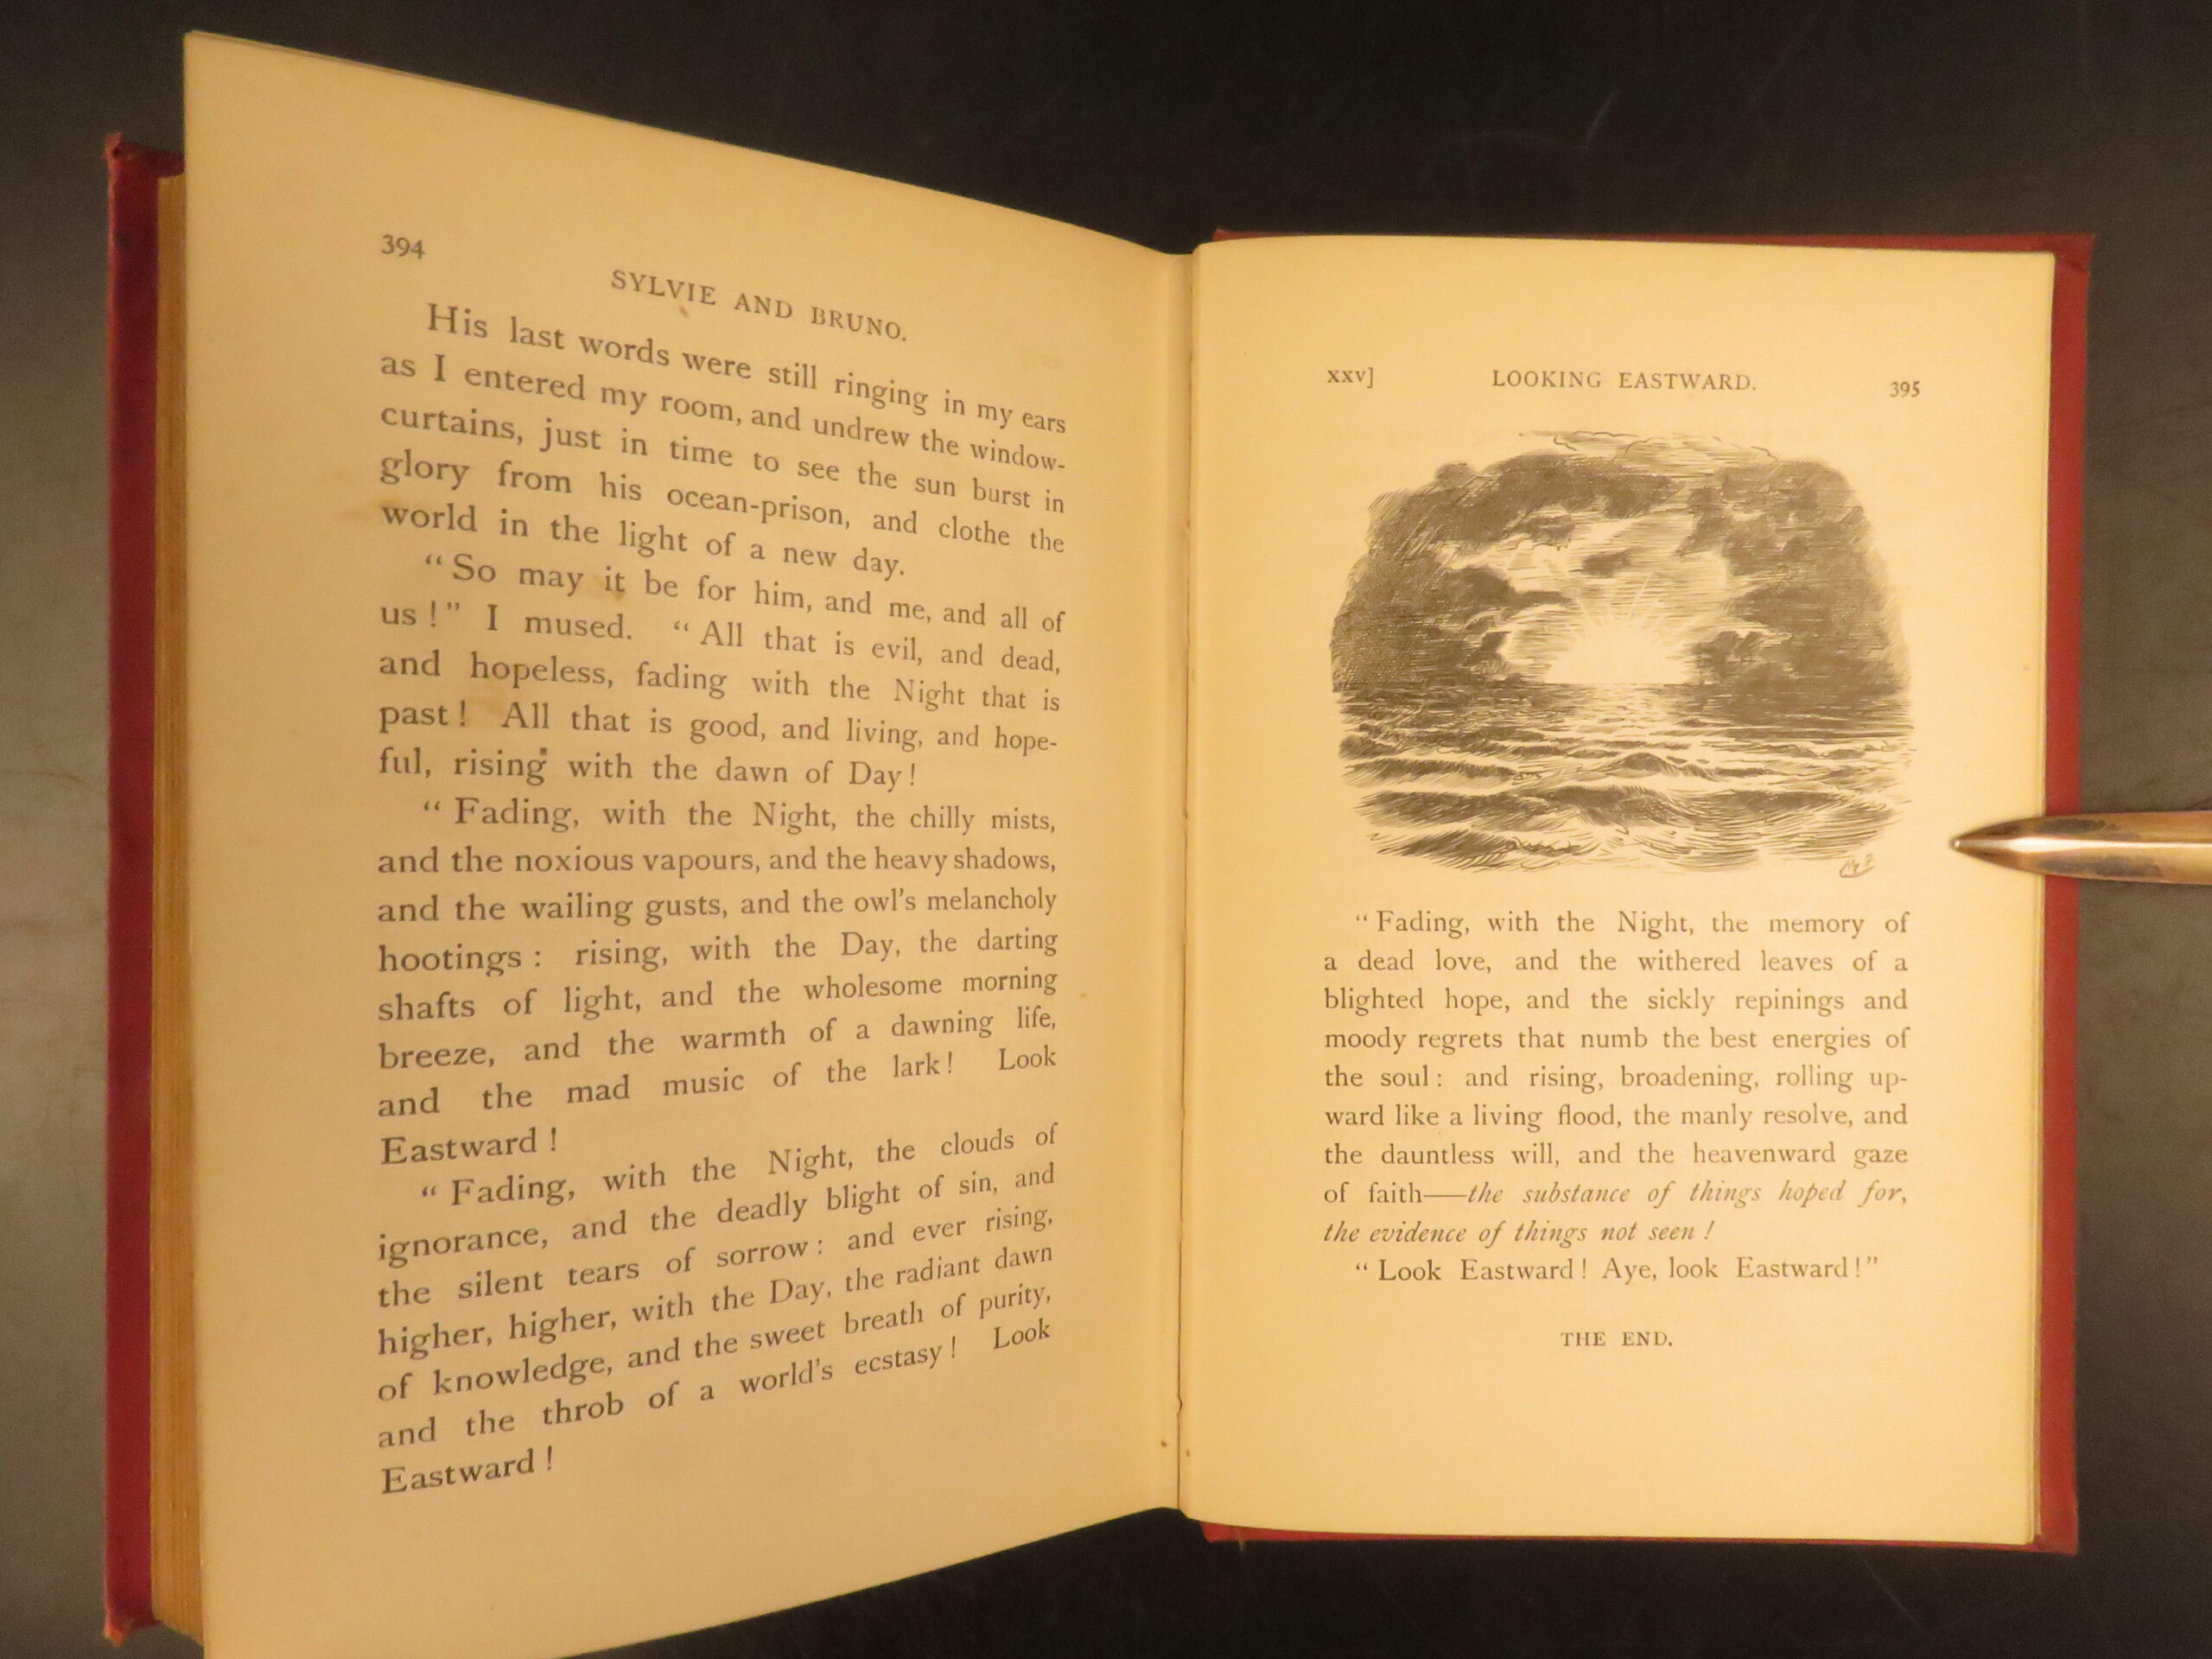 394
SYLVIE AND BRUNO.
His last words were still ringing in my ears
as I entered my room, and undrew the window-
curtains, just in time to see the sun burst in
glory from his ocean-prison, and clothe the
world in the light of a new day.
“So may it be for him, and me, and all of
us!” I mused. “All that is evil, and dead,
and hopeless, fading with the Night that is
past! All that is good, and living, and hope-
ful, rising with the dawn of Day!
“Fading, with the Night, the chilly mists,
and the noxious vapours, and the heavy shadows,
and the wailing gusts, and the owl’s melancholy
hootings: rising, with the Day, the darting
shafts of light, and the wholesome morning
breeze, and the warmth of a dawning life,
and the mad music of the lark! Look
Eastward!
“Fading, with the Night, the clouds of
ignorance, and the deadly blight of sin, and
the silent tears of sorrow: and ever rising,
higher, higher, with the Day, the radiant dawn
of knowledge, and the sweet breath of purity,
and the throb of a world’s ecstasy! Look
Eastward!
XXV] LOOKING EASTWARD. 395
“Fading, with the Night, the memory of
a dead love, and the withered leaves of a
blighted hope, and the sickly repinings and
moody regrets that numb the best energies of
the soul: and rising, broadening, rolling up-
ward like a living flood, the manly resolve, and
the dauntless will, and the heavenward gaze
of faith——the substance of things hoped for,
the evidence of things not seen!
“Look Eastward! Aye, look Eastward!”
THE END.